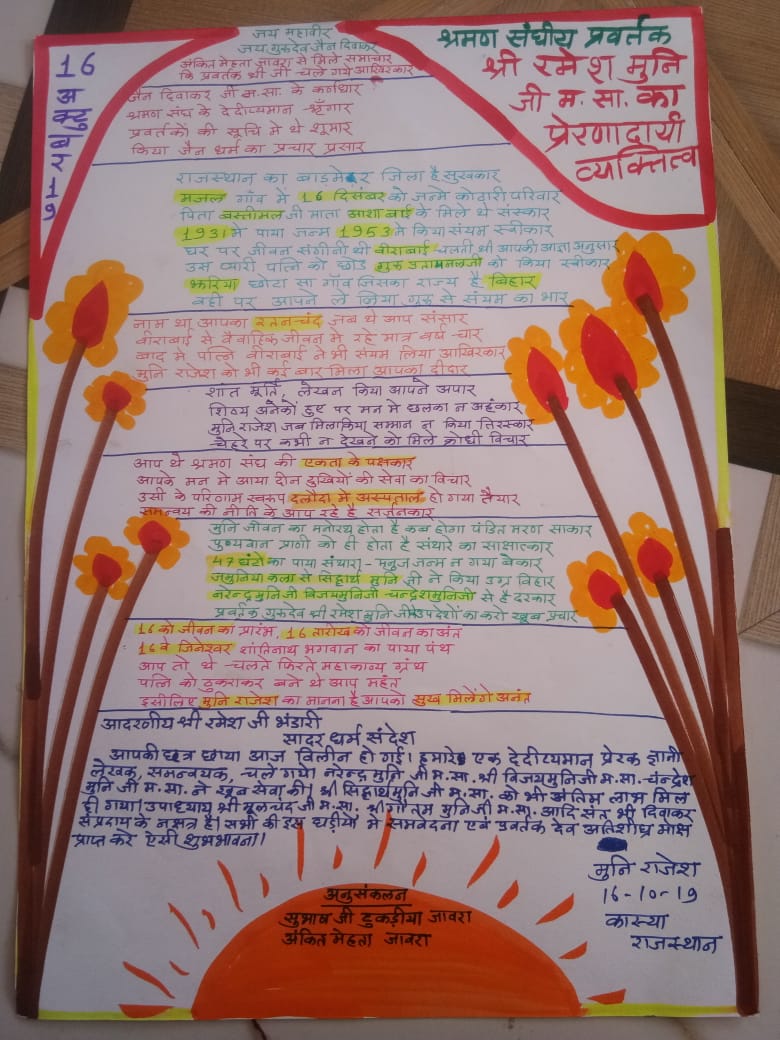 जय महावीर
जय गुरुदेव जैन दिवाकर
अंकित मेहता जावरा से मिले समाचार
कि प्रवर्तक श्री जी चले गये आखिरकार
श्रमण संघीय प्रवर्तक
श्री रमेश मुनि
जी म. सा. का
प्रेरणादायी
व्यक्तित्व
16 अक्टुबर 19
जैन दिवाकर जी म.सा. के कर्णधार
श्रमण संघ के देदीप्यमान श्रृंगार
प्रवर्तकों की सूचि में थे शुमार
किया जैन धर्म का प्रचार प्रसार
राजस्थान का बाडमेर जिला है सुखकार
मजल गाँव में 16 दिसंबर को जन्मे कोठारी परिवार
पिता बस्तीमल जी माता आशा बाई के मिले थे संस्कार
1931 मे पाया जन्म 1953 मे किया संयम स्वीकार
घर पर जीवन संगीनी थी वीराबाई चलती थी आपकी आज्ञा अनुसार
उस प्यारी पत्नि को छोड गुरु प्रतापमलजी को किया स्वीकार
झरिया छोटा सा गाँव जिसका राज्य है बिहार
वही पर आपने ले लिया गुरु से संयम का भार
नाम था आपका रतनचंद जब थे आप संसार
वीराबाई से वैवाहिक जीवन में रहे मात्र वर्ष चार
बाद मे पत्नि वीराबाई ने भी संयम लिया आखिरकार
मुनि राजेश को भी कई बार मिला आपका दीदार
शांत मूर्ति, लेखन किया आपने अपार
शिष्य अनेकों हुए पर मन मे छलका न अहंकार
मुनि राजेश जब मिला किया सम्मान न किया तिरस्कार
चेहरे पर कभी न देखने को मिले क्रोधी विचार
आप थे श्रमण संघ की एकता के पक्षकार
आपके मन में आया दीन दुखियों की सेवा का विचार
उसी के परिणाम स्वरुप दलौदा में अस्पताल हो गया तैयार
समन्वय की नीति के आप रहे है सर्जनकार
मुनि जीवन का मनोरथ होता है कब होगा पंडित मरण साकार
पुण्यवान प्राणी को ही होता है संथारे का साक्षात्कार
47 घंटो का पाया संथारा - मनुज जन्म न गया बेकार
जमुनिया कला से सिद्धार्थ मुनि जी ने किया उग्र विहार
नरेन्द्रमुनिजी विजयमुनिजी चन्द्रेशमुनिजी से है दरकार
प्रवर्तक गुरुदेव श्री रमेश मुनि जी म उपदेशों का करो खूब प्रचार
16 को जीवन का प्रारंभ, 16 तारीख को जीवन का अंत
16 वे जिनेश्वर शांतिनाथ भगवान का पाया पंथ
आप तो थे चलते फिरते महाकाव्य ग्रंथ
पत्नि को ठुकराकर बने थे आप महंत
इसीलिए मुनि राजेश का मानना है आपको सुख मिलेंगे अनंत
आदरणीय श्री रमेश जी भंडारी
सादर धर्म संदेश
आपकी छत्र छाया आज विलीन हो गई। हमारे एक देदीप्यमान प्रेरक ज्ञानी
लेखक, समन्वयक, चले गये। नरेन्द्र मुनि जी म.सा. श्री विजयमुनिजी म.सा. चन्द्रेश
मुनि जी म.सा. ने खूब सेवा की। श्री सिद्धार्थमुनि जी म.सा. को भी अंतिम लाभ मिल
ही गया। उपाध्याय श्री मूलचंद जी म.सा. श्री गौतम मुनि जी म.सा. आदि संत भी दिवाकर
संप्रदाय के नक्षत्र है। सभी की इस घड़ीयो मे समवेदना एवं प्रवर्तक देव अतिशीघ्र मोक्ष
प्राप्त करे ऐसी शुभभावना।
मुनि राजेश
16-10-19
कास्या
राजस्थान
अनुसंकलन
सुभाष जी टुकड़ीया जावरा
अंकित मेहता जावरा